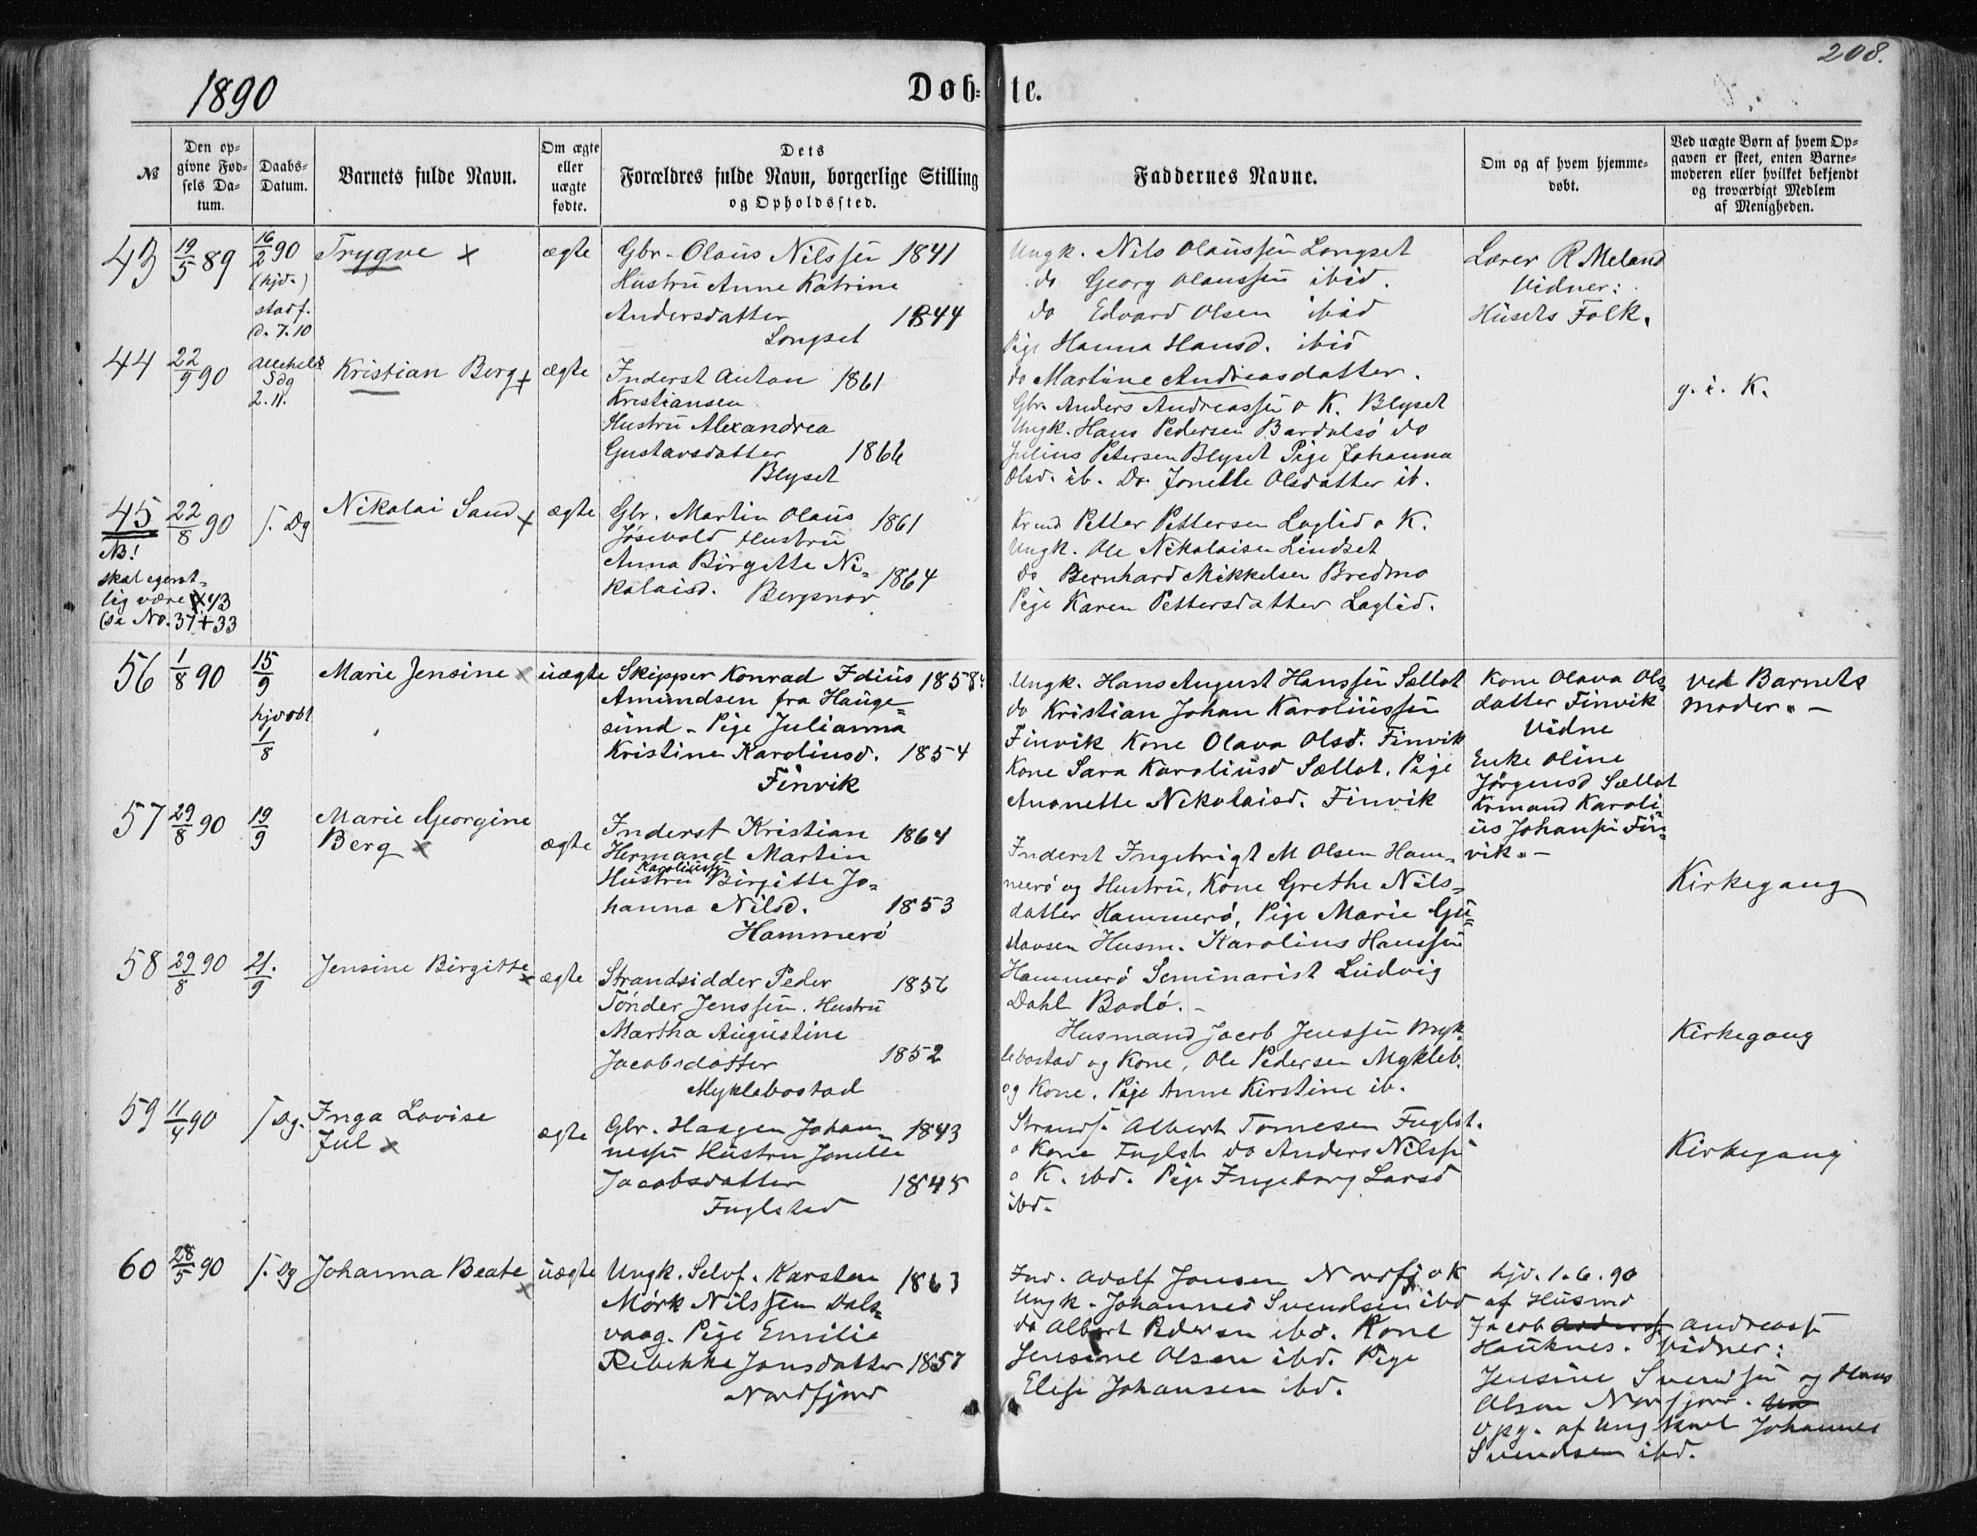 208.
1890
Døb-
te.
№
Den op-
givne Fød-
sels Da-
tum.
Daabs-
Datum.
Barnets fulde Navn.
Om ægte
eller
uægte
fødte.
Dets
Forældres fulde Navn, borgerlige Stilling
og Opholdssted.
Faddernes Navne.
Om og af hvem hjemme-
døbt.
Ved uægte Børn af hvem Op-
gaven er skeet, enten Barne-
moderen eller hvilket bekjendt
og troværdigt Medlem
af Menigheden.
43
19/5 89
16/2 90
(hjd.)
stadf.
d. 7.10
Trygve x
ægte
Gbr. Olaus Nilssen 1841
Hustru Anne Katrine
Andersdatter 1844
Longset
Ungk. Nils Olaussen Longset
do Georg Olaussen ibid.
do Edvard Olsen ibid
Pige Hanna Hansd. ibid
do Martine Andreasdatter.
Lærer R Meland
Vidner:
Husets Folk.
44
22/9 90
Allehelg
Sdg
2.11.
Kristian Berg +
ægte
Inderst Anton 1861
Kristiansen
Hustru Alexandrea
Gustavsdatter 1866
Blyset
Gbr. Anders Andreassen o K. Blyset
Ungk. Hans Pedersen Bardalsø do
Julius Petersen Blyset Pige Johanna
Olsd. ib. Do. Jonette Olsdatter ib.
g. i. K.
45
NB!
skal egent-
lig være 43
(se No. 37+33
22/8 90
S. Dg
Nikolai Sand x
ægte
Gbr. Martin Olaus 1861
Josevold Hustru
Anna Birgitte Ni-
kolaisd. 1864
Bergsnov
Krmd Petter Pettersen Laglid o K.
Ungk. Ole Nikolaisen Lindset
do Bernhard Mikkelsen Bredmo
Pige Karen Pettersdatter Laglid.
56
1/8 90
15/9
hjdøbt
1/8
Marie Jensine x
uægte
Skipper Konrad Idius 1858
Amundsen fra Hauge-
sund - Pige Julianna
Kristine Karoliusd. 1854
Finvik
Ungk. Hans August Hanssen Sællat
do Kristian Johan Karoliussen
Finvik Kone Olava Olsd. Finvik
Kone Sara Karoliusd Sællat. Pige
Anonette Nikolaisd. Finvik
Kone Olava Ols-
datter Finvik
Vidne
Enke Oline
Jørgensd Sællat
Krmand Karoli-
us Johansen Fin-
vik. -
ved Barnets
Moder. -
57
29/8 90
19/9
Marie Georgine
Berg x
ægte
Inderst Kristian 1864
Hermand Martin
Karoliussen
Hustru Birgitte Jo-
hanna Nilsd. 1853
Hammerø
Inderst Ingebrigt M Olsen Ham-
merø og Hustru, Kone Grethe Nils-
datter Hammerø, Pige Marie Gu-
stavsen Husm. Karolius Hanssen
Hammerø Seminarist Ludvig
Dahl Bodø. -
Kirkegang
58
29/8 90
21./9
Jensine Birgitte x
ægte
Strandsidder Peder 1856
Tønder Jenssen. Hustru
Martha Augustine
Jacobsdatter 1852
Myklebostad
Husmand Jacob Jenssen Myk-
lebostad og Kone, Ole Pedersen Mykleb.
og Kone. Pige Anne Kirstine ib.
Kirkegang
59
11/4 90
S Dg.
Inga Lovise
Jul x
ægte
Gbr. Haagen Johan- 1843
nessen Hustru Jonette
Jacobsdatter 1845
Fuglstad
Strands. Albert Tomesen Fuglst.
o Kone Fuglst do Anders Nilssen
o K. ibd. Pige Ingeborg Larsd
ibd.
Kirkegang
60
28/5 90
S. Dg
Johanna Beate x
uægte
Ungk. Selvf. Karsten 1863
Mørk Nilssen Dals-
vaag. Pige Emilie
Rebekka Jonsdatter 1857
Nordfjord
Ind. Adolf Jonsen Nordfj o K
Ungk. Johannes Svendsen ibd
do Albert Pedersen ibd. Kone
Jensine Olsen ibd. Pige
Elise Johansen ibd.
hjd. 1.6.90
af Husmd
Jacob Andreass
Hauknes. Vidner:
Jensine Svendsen og Hans
Olsen Nordfjord.
Opg. af Ungkarl Johannes
Svendsen ibd.